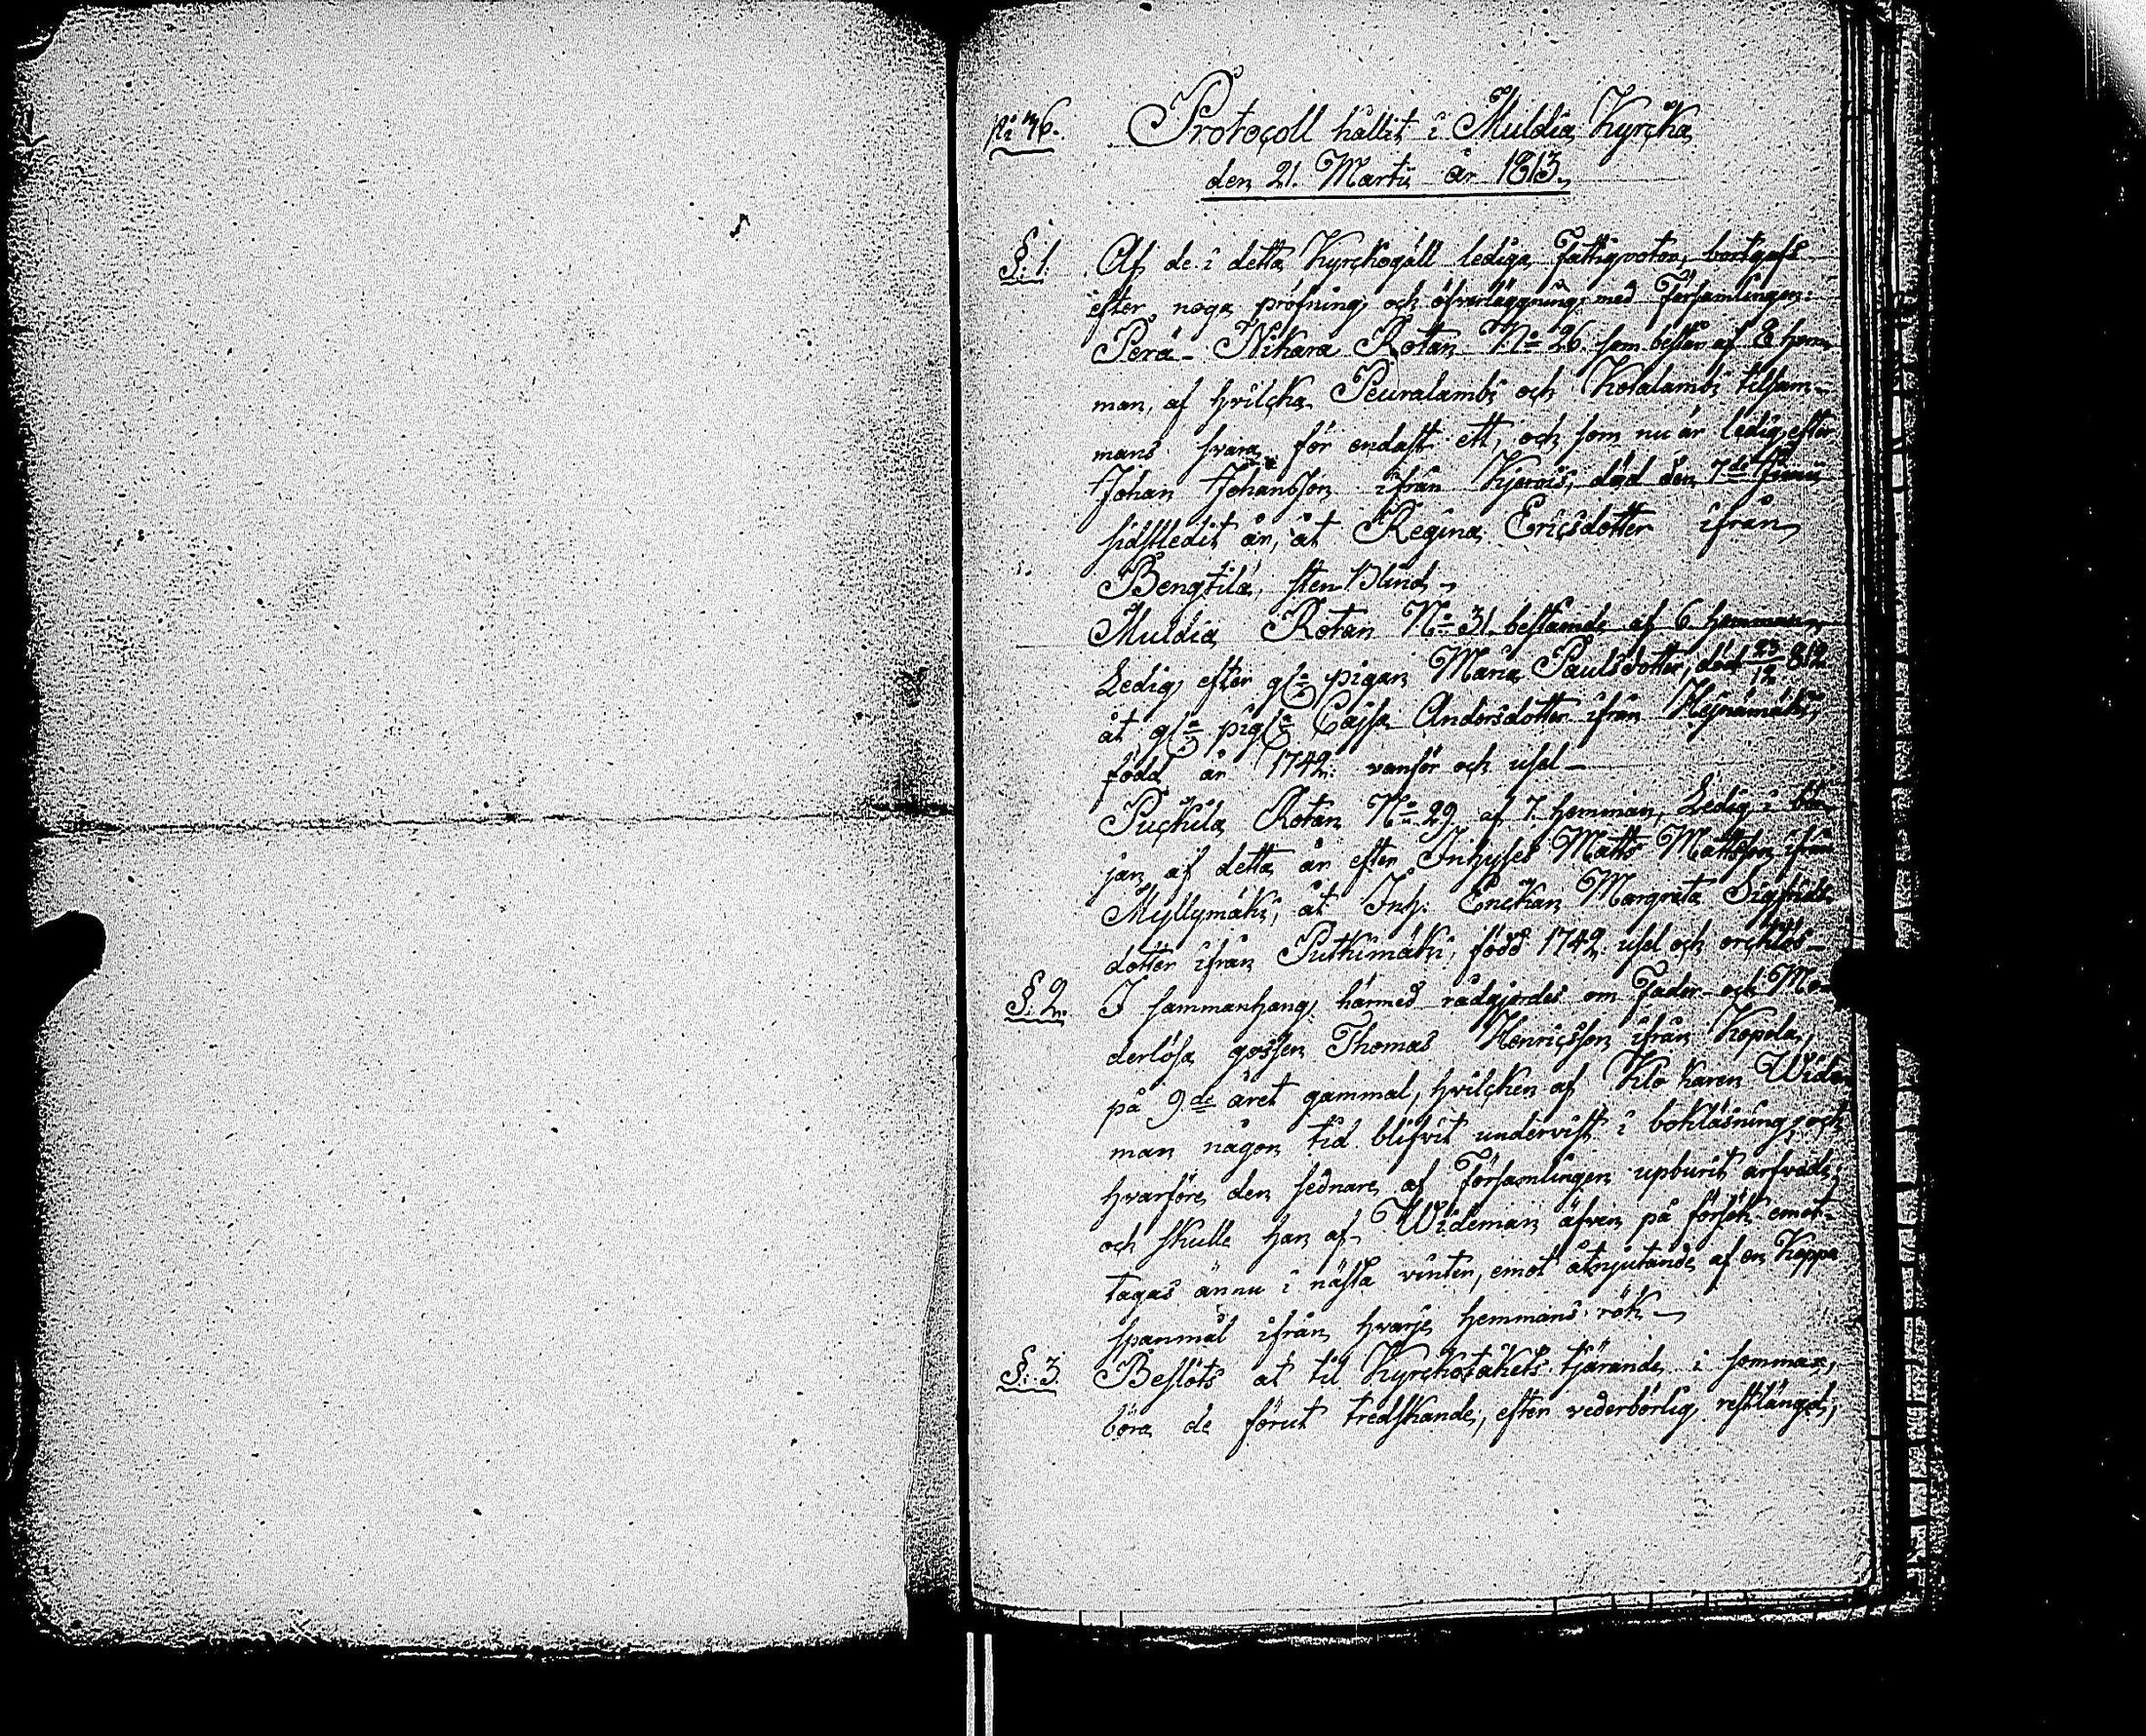 Protocoll hållit i Muldia Kyrcka
den 21. Martii år 1813.
§. 1. Af de i detta Kyrckogäll lediga Fattigrotar, bortgafs
efter noga pröfning och öfverläggning med Församlingen:
Perä-Nikara Rotan N:o 26. som består af 8 hem-
man, af hvilcka Peuralambi och Kotalambi tilsam-
mans svara för endast ett, och som nu är ledig efter
Johan Johansson ifrån Kjerois, död den 7de Junii
sidstledit år, åt Regina Ericsdotter ifrån
Bengtilä, sten-Blind
Muldia Rotan N:o 31. bestående af 6 hemman,
Ledig efter gla pigan Maria Paulsdotter, död 23/12 812
åt gla pig. Cajsa Andersdotter ifrån Hejnämäki,
född år 1742. vanför och usel
Puckila Rotan N:o 29. af 7. hemman, Ledig i bör-
jan af detta år efter Inhyses Matts Mattsson ifrån
Myllymäki, åt Inh: Enckan Margreta Sigfrids-
dotter ifrån Putkimäki, född 1742. usel och orcklös
§. 2. I sammanhang härmed rådgjordes om Fader- och Mo-
derlösa gossen Thomas Henricsson ifrån Kopola,
på 9de året gammal, hvilcken af Klockaren Wide-
man någon tid blifvit undervist i bokläsning, och
hvarföre den sednare af Församlingen upburit arfvode;
och skulle han af Wideman äfven på försök emot-
tagas ännu i nästa vinter, emot åtnjutande af en Kappa
spanmål ifrån hvarje hemmans rök
§. 3. Beslöts at til Kyrckotakets tjärande i sommar,
böra de förut tredskande, efter vederbörlig restlängd,